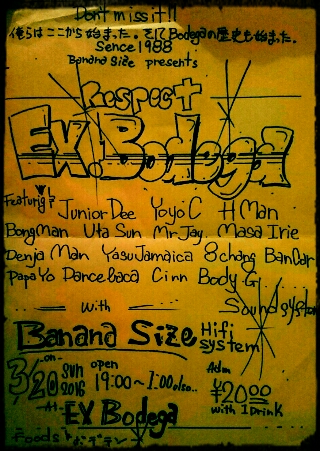 Don't miss it!!
俺らはここから始まった。そしてBodegaの歴史も始まった.
Since 1988
Banana Size presents
Respect
EX.Bodega
Featurig
Junior Dee Yoyo C H Man
Bong Man Uta Sun Mr Jay. Masa Irie
Denja Man Yasu Jamaica 8chang BanCar
Papa Yo Dancebaca Cinn Body G
Sound system
with
Banana Size Hifi system
-on-
3/20 SUN 2016 open 19:00~1:00
Adm ¥2000 with 1 Drink
-At- EX Bodega
Foods おデン